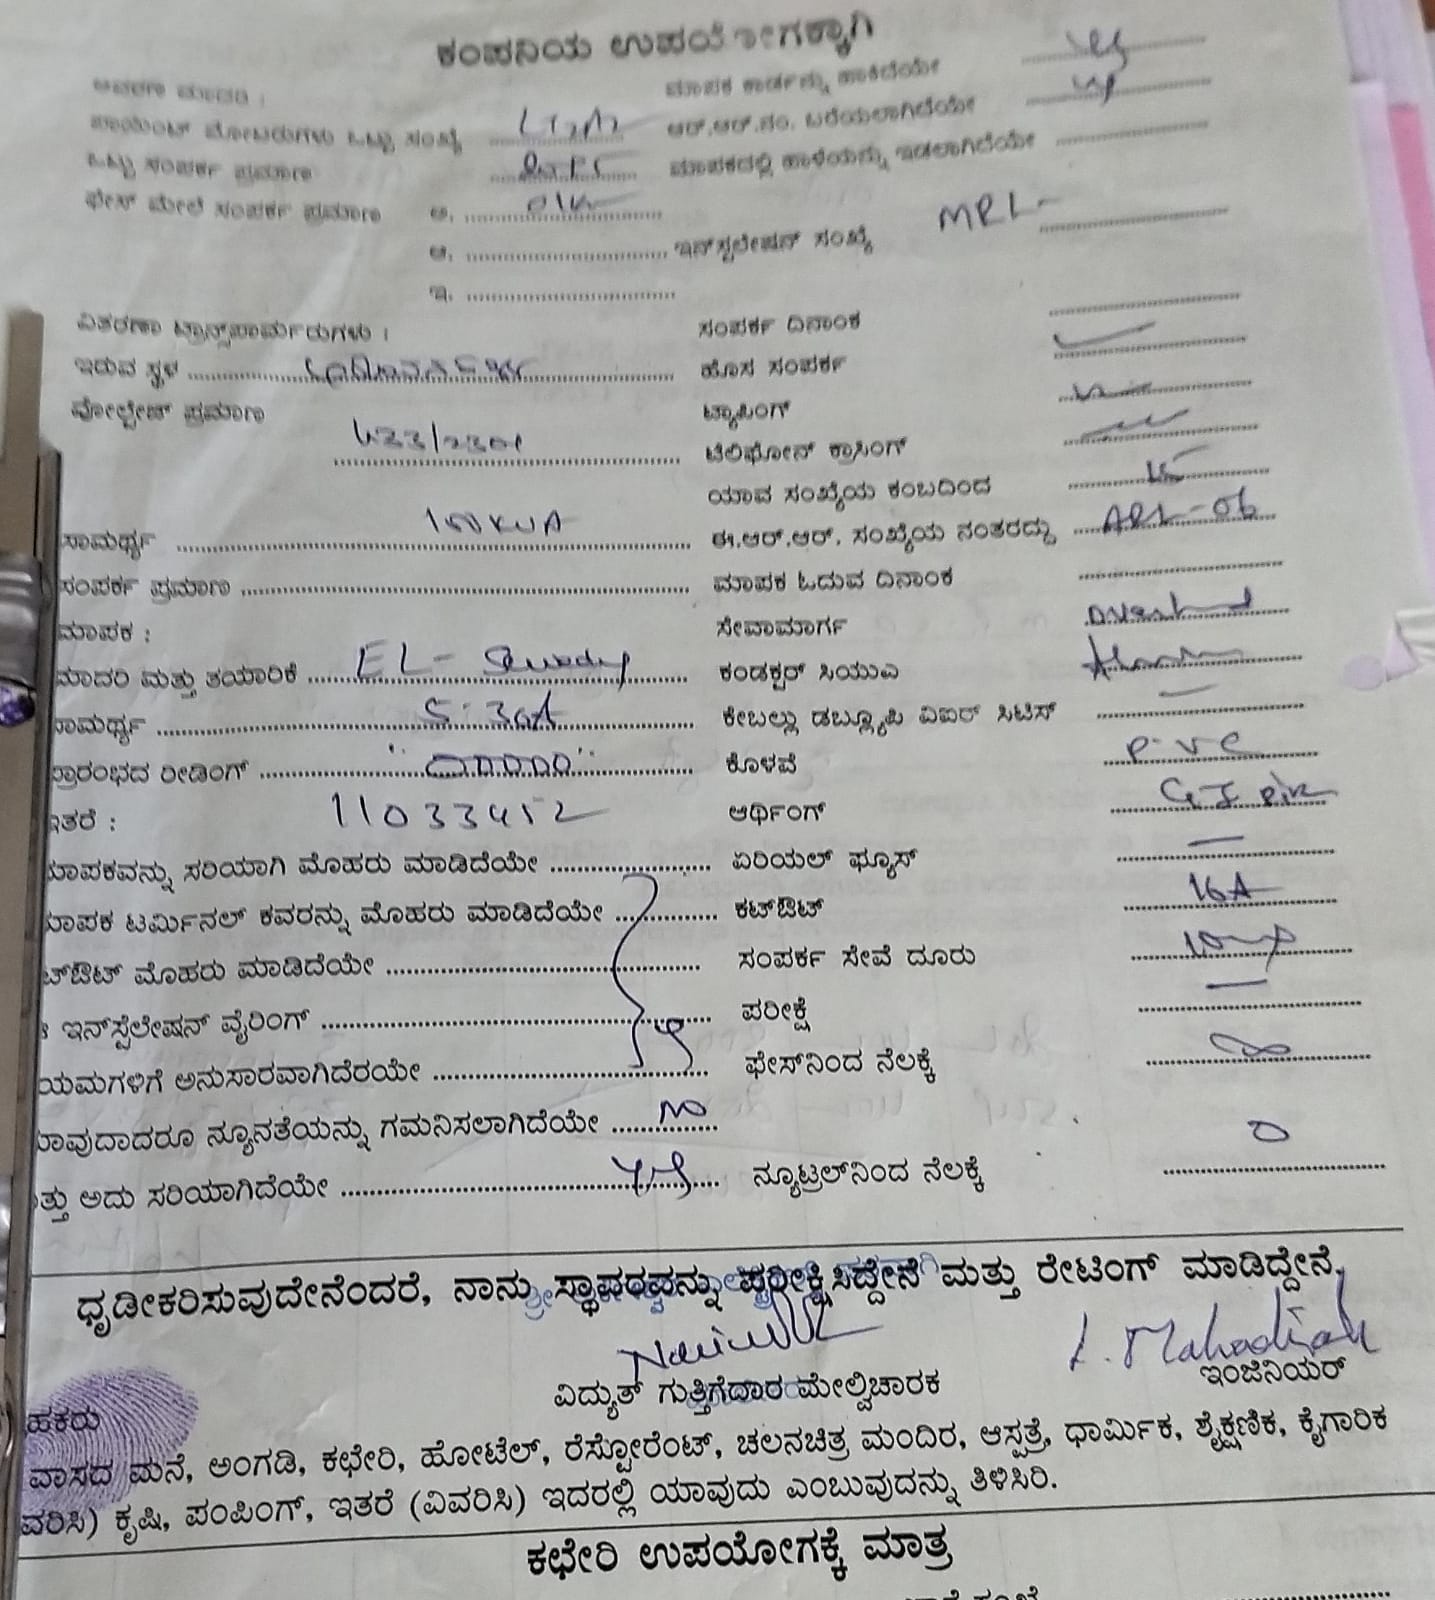 ಕಂಪನಿಯ ಉಪಯೋಗಕ್ಕಾಗಿ
ಆವರಣ ಮಾದರಿ : ಮಾಪಕ ಕಾರ್ಡನ್ನು ಹಾಕಿದೆಯೇ yes
ಪಾಯಿಂಟ್ ಮೋಟರುಗಳು ಒಟ್ಟು ಸಂಖ್ಯೆ ಆರ್.ಆರ್.ನಂ. ಬರೆಯಲಾಗಿದೆಯೇ
ಒಟ್ಟು ಸಂಪರ್ಕ ಪ್ರಮಾಣ ಮಾಪಕದಲ್ಲಿ ಹಾಳೆಯನ್ನು ಇಡಲಾಗಿದೆಯೇ
ಫೇಸ್ ಮೇಲೆ ಸಂಪರ್ಕ ಪ್ರಮಾಣ ಅ.
ಆ. ಇನ್‌ಸ್ಟಲೇಷನ್ ಸಂಖ್ಯೆ MRL-
ಇ.
ವಿತರಣಾ ಟ್ರಾನ್ಸ್‌ಫಾರ್ಮರುಗಳು : ಸಂಪರ್ಕ ದಿನಾಂಕ
ಇರುವ ಸ್ಥಳ ಹೊಸ ಸಂಪರ್ಕ
ವೋಲ್ಟೇಜ್ ಪ್ರಮಾಣ ಟ್ಯಾಪಿಂಗ್
ಟೆಲಿಫೋನ್ ಕ್ರಾಸಿಂಗ್
ಯಾವ ಸಂಖ್ಯೆಯ ಕಂಬದಿಂದ
ಸಾಮರ್ಥ್ಯ 100 KVA ಈ.ಆರ್.ಆರ್. ಸಂಖ್ಯೆಯ ನಂತರದ್ದು
ಸಂಪರ್ಕ ಪ್ರಮಾಣ ಮಾಪಕ ಓದುವ ದಿನಾಂಕ
ಮಾಪಕ : ಸೇವಾಮಾರ್ಗ
ಮಾದರಿ ಮತ್ತು ತಯಾರಿಕೆ EL- ಕಂಡಕ್ಟರ್ ಸಿಯುಎ
ಸಾಮರ್ಥ್ಯ 5-30A ಕೇಬಲ್ಲು ಡಬ್ಲ್ಯೂಪಿ ವಿಐರ್ ಸಿಟಿಸ್
ಪ್ರಾರಂಭದ ರೀಡಿಂಗ್ "00000" ಕೊಳವೆ P.V.C
ಇತರೆ : 11033452 ಆರ್ಥಿಂಗ್ GI
ಮಾಪಕವನ್ನು ಸರಿಯಾಗಿ ಮೊಹರು ಮಾಡಿದೆಯೇ ಏರಿಯಲ್ ಫ್ಯೂಸ್
ಮಾಪಕ ಟರ್ಮಿನಲ್ ಕವರನ್ನು ಮೊಹರು ಮಾಡಿದೆಯೇ ಕಟ್‌ಔಟ್ 16A
ಟ್‌ಔಟ್ ಮೊಹರು ಮಾಡಿದೆಯೇ ಸಂಪರ್ಕ ಸೇವೆ ದೂರು
ಇನ್‌ಸ್ಪೆಲೇಷನ್ ವೈರಿಂಗ್ ಪರೀಕ್ಷೆ
ಯಮಗಳಿಗೆ ಅನುಸಾರವಾಗಿದೆರಯೇ ಫೇಸ್‌ನಿಂದ ನೆಲಕ್ಕೆ
ಯಾವುದಾದರೂ ನ್ಯೂನತೆಯನ್ನು ಗಮನಿಸಲಾಗಿದೆಯೇ No
ತ್ತು ಅದು ಸರಿಯಾಗಿದೆಯೇ yes ನ್ಯೂಟ್ರಲ್‌ನಿಂದ ನೆಲಕ್ಕೆ 0
ಧೃಡೀಕರಿಸುವುದೇನೆಂದರೆ, ನಾನು ಸ್ಥಾವರವನ್ನು ಪರೀಕ್ಷಿಸಿದ್ದೇನೆ ಮತ್ತು ರೇಟಿಂಗ್ ಮಾಡಿದ್ದೇನೆ.
L. Mahadiah
ವಿದ್ಯುತ್ ಗುತ್ತಿಗೆದಾರ ಮೇಲ್ವಿಚಾರಕ ಇಂಜಿನಿಯರ್
ಹಕರು
ವಾಸದ ಮನೆ, ಅಂಗಡಿ, ಕಛೇರಿ, ಹೋಟೆಲ್, ರೆಸ್ಟೋರೆಂಟ್, ಚಲನಚಿತ್ರ ಮಂದಿರ, ಆಸ್ಪತ್ರೆ, ಧಾರ್ಮಿಕ, ಶೈಕ್ಷಣಿಕ, ಕೈಗಾರಿಕ
ವರಿಸಿ) ಕೃಷಿ, ಪಂಪಿಂಗ್, ಇತರೆ (ವಿವರಿಸಿ) ಇದರಲ್ಲಿ ಯಾವುದು ಎಂಬುವುದನ್ನು ತಿಳಿಸಿರಿ.
ಕಛೇರಿ ಉಪಯೋಗಕ್ಕೆ ಮಾತ್ರ